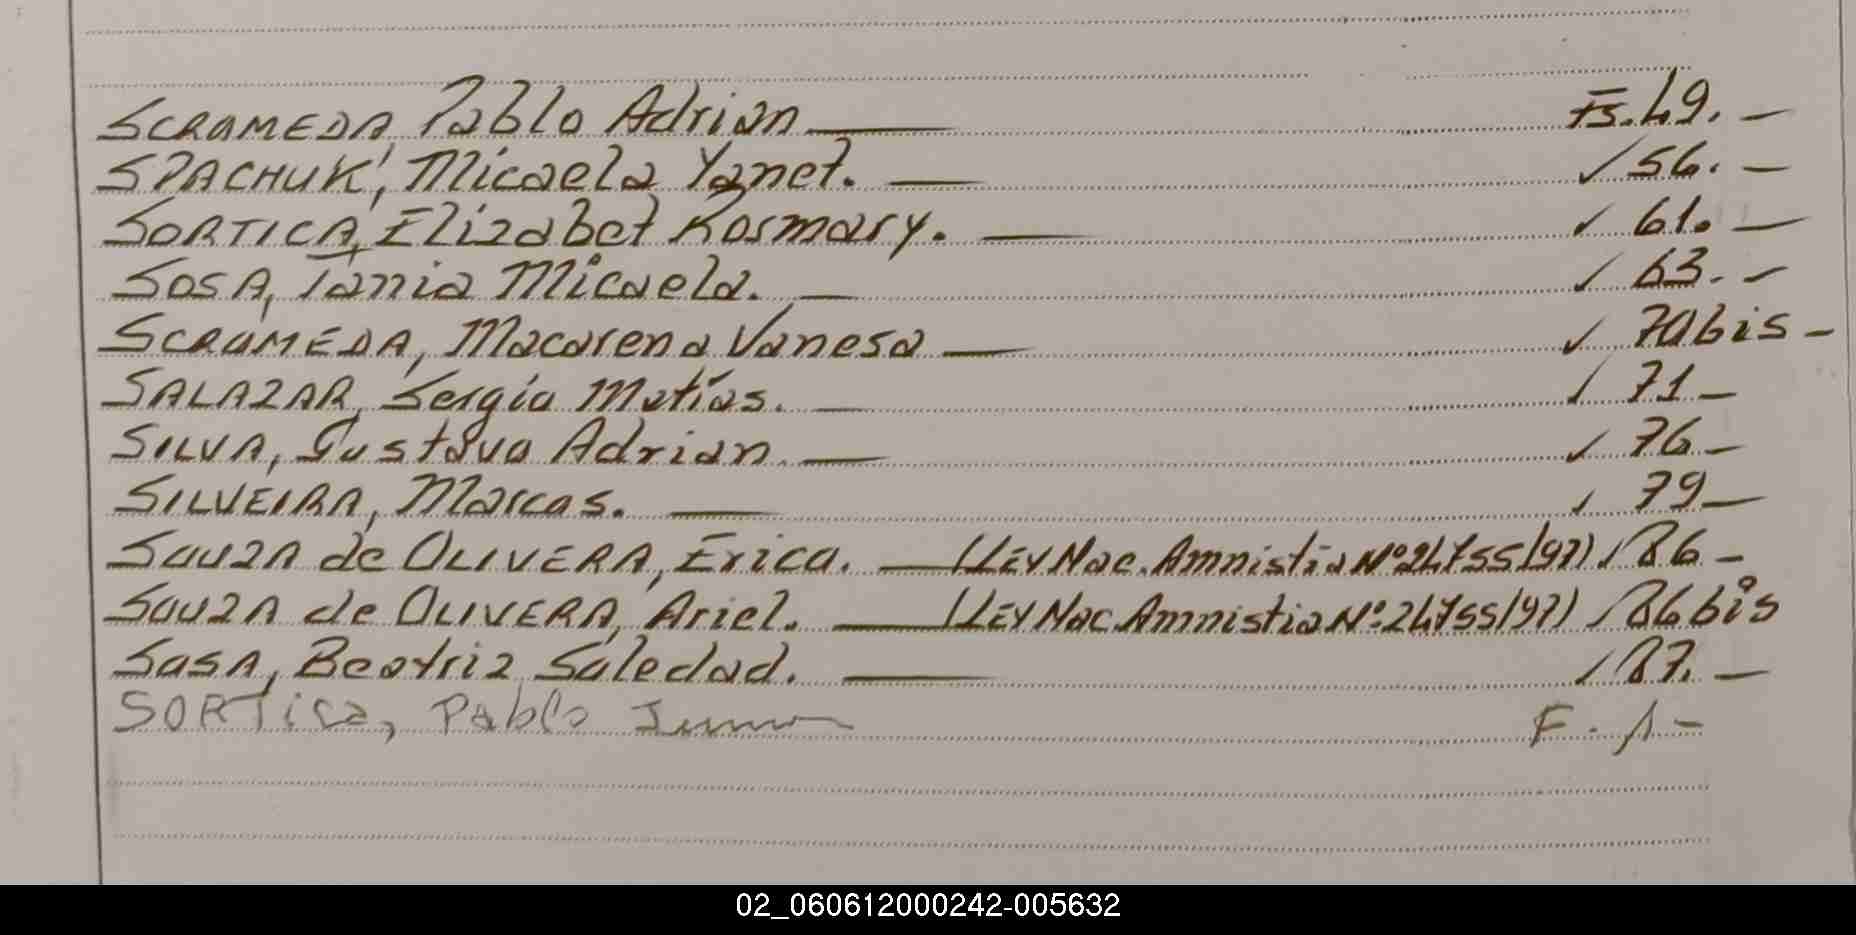 SCROMEDA, Pablo Adrian — Fs. 49. —
SPACHUK, Micaela Yanet. — ✓ 56. —
SORTICA, Elizabet Rosmary. — ✓ 61. —
SOSA, Tania Micaela. — ✓ 63. —
SCROMEDA, Macarena Vanesa — ✓ 70 bis —
SALAZAR, Sergio Matías. — ✓ 71 —
SILVA, Gustavo Adrian. — ✓ 76 —
SILVEIRA, Marcos. — ✓ 79 —
SOUZA de OLIVERA, Erica. — (LEY Nac. Amnistia Nº 24755/97) ✓ 86 —
SOUZA de OLIVERA, Ariel. — (LEY Nac. Amnistia Nº: 24755/97) ✓ 86 bis
SOSA, Beatriz Soledad. — ✓ 87. —
SORTica, Pablo F. 1 —
02_060612000242-005632